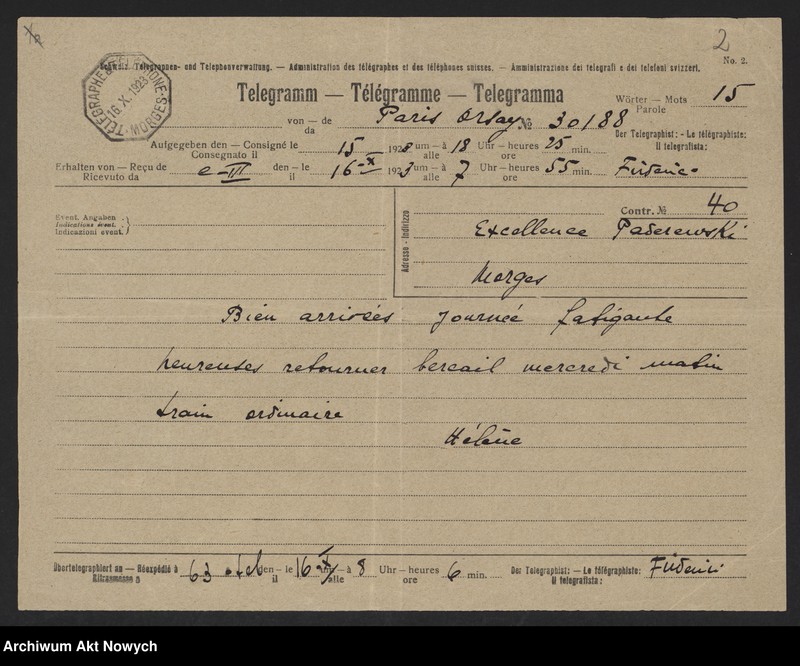 2
Schweiz. Telegraphen- und Telephonverwaltung. — Administration des télégraphes et des téléphones suisses. — Amministrazione dei telegrafi e dei telefoni svizzeri.
No. 2.
16.X.1923
MORGES
Telegramm — Télégramme — Telegramma
Wörter — Mots 15
Parole
von — de Paris Orsay № 30188
da
Der Telegraphist: - Le télégraphiste:
Il telegrafista:
Aufgegeben den — Consigné le 15 1923 um — à 18 Uhr — heures 25 min.
Consegnato il alle ore
Erhalten von — Reçu de e-III den — le 16-X 1923 um — à 7 Uhr — heures 55 min.
Ricevuto da il alle ore
Event. Angaben
Indications évent.
Indicazioni event.
Adresse - Indirizzo
Contr. № 40
Excellence Paderewski
Morges
Bien arrivées journée fatigante
heureuses retourner bercail mercredi matin
train ordinaire
Hélène
Übertelegraphiert an — Réexpédié à 63 den — le 16 X um — à 8 Uhr — heures 6 min.
Ritrasmesso a il alle ore
Der Telegraphist: — Le télégraphiste:
Il telegrafista:
Archiwum Akt Nowych